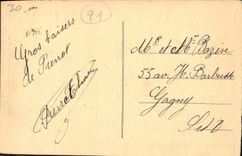 30.-
91
Gros baisers
de Pierrot
Mr et Me Rozine
55 av. H. Barbusse
Gagny
S et O